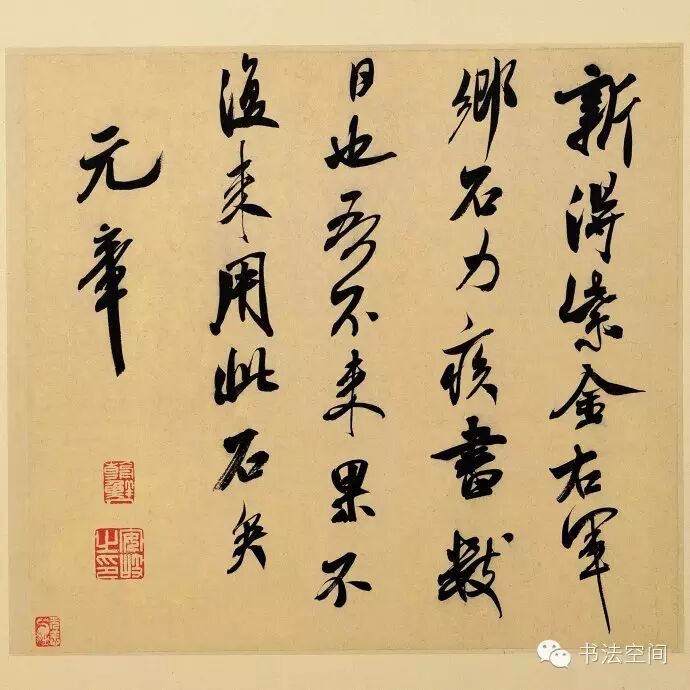 新得紫金右軍
鄉石力疾書數
日也吾不来果不
復来用此石矣
元章
书法空间